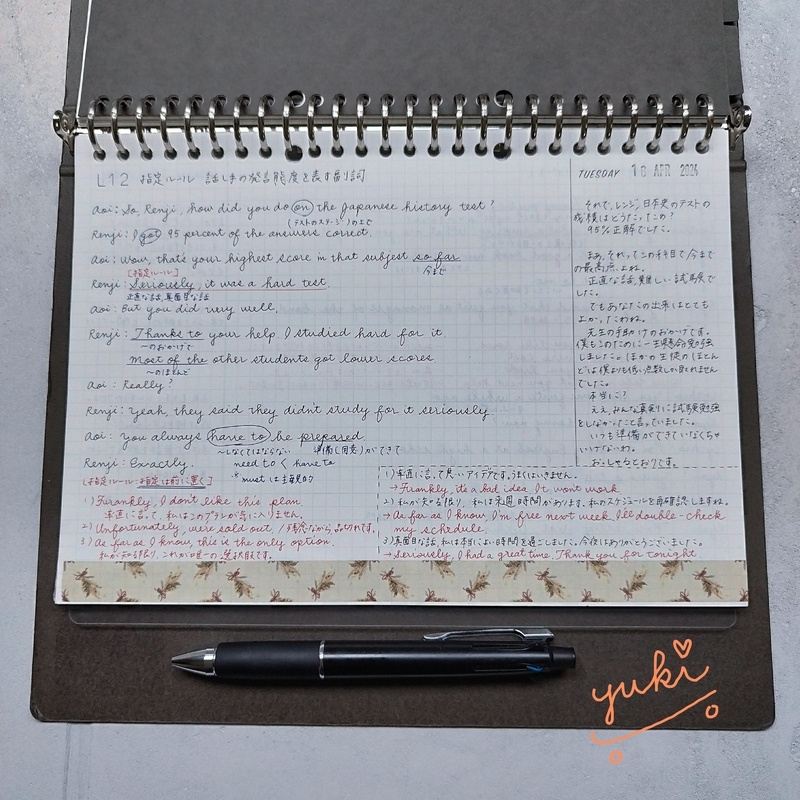 L12 指定ルール 話し手の発言態度を表す副詞
TUESDAY 18 APR 2026
Aoi: So, Renji, how did you do on the Japanese history test?
(テストのステージ)の上で
Renji: I got 95 percent of the answers correct.
Aoi: Wow, that's your highest score in that subject so far
今まで
[指定ルール]
Renji: Seriously, it was a hard test.
正直な話,真面目な話
Aoi: But you did very well.
Renji: Thanks to your help, I studied hard for it
〜のおかげで
Most of the other students got lower scores
〜のほとんど
Aoi: Really?
Renji: Yeah, they said they didn't study for it seriously.
Aoi: You always have to be prepared
〜しなくてはならない 準備(用意)ができて
Renji: Exactly.
need to < have to
※ must は主観的
[指定ルール:指定は前に置く]
1) Frankly, I don't like this plan
率直に言って、私はこのプランが気に入りません。
2) Unfortunately, we're sold out / 残念ながら,品切れです。
3) As far as I know, this is the only option.
私が知る限り,これが唯一の選択肢です。
それで,レンジ,日本史のテストの
成績はどうだったの?
95%正解でした。
まあ,それってこの科目で今まで
の最高点よね。
正直な話,難しい試験で
した。
でもあなたの出来はとても
よかったわね。
先生の手助けのおかげです。
僕もこのために一生懸命勉強
しました。ほかの生徒のほとん
どは僕よりも低い点数しか取れません
でした。
本当に?
ええ,みんな真剣に試験勉強
をしなかったと言っていました。
いつも準備ができていなくちゃ
いけないわ。
おっしゃるとおりです。
1) 率直に言って,悪いアイデアです,うまくはいきません。
→ Frankly, it's a bad idea. It won't work
2) 私が知る限り、私は来週時間があります,私のスケジュールを再確認しますね。
→ As far as I know, I'm free next week. I'll double-check
my schedule.
3) 真面目な話,私は本当によい時間を過ごしました。今夜はありがとうございました。
→ Seriously, I had a great time. Thank you for tonight
yuki